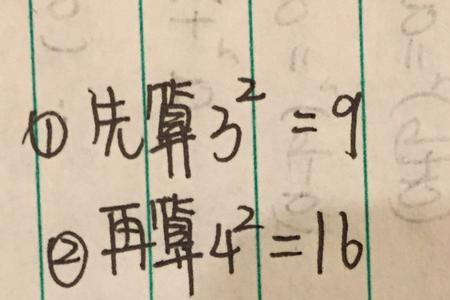 ①先算3²=9
②再算4²=16